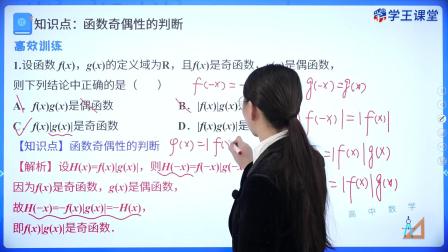 知识点：函数奇偶性的判断
学王课堂
高效训练
1.设函数 f(x)，g(x)的定义域为R，且f(x)是奇函数，g(x)是偶函数，
则下列结论中正确的是（ ）
f(-x)=- g(-x)=g(x)
A．f(x)g(x)是偶函数 B．|f(x)|g(x)
|f(-x)|=|f(x)|
C．f(x)|g(x)|是奇函数 D．|f(x)g(x)|是
|g(x)
【知识点】函数奇偶性的判断
φ(x)=|f(x)
【解析】设H(x)=f(x)|g(x)|，则H(-x)=f(-x)|g(-x)|
=|f(x)|g(x)
因为f(x)是奇函数，g(x)是偶函数，
故H(-x)=-f(x)|g(x)|=-H(x)，
高中数学
即f(x)|g(x)|是奇函数．